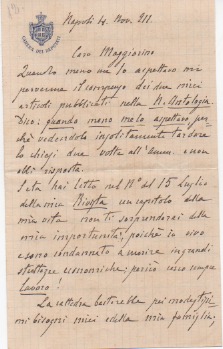 CAMERA DEI DEPUTATI
Napoli 4. Nov. 211.
Caro Maggiorino
Quando meno me lo aspettavo mi
pervenne il compenso dei due miei
articoli pubblicati nella N. Antologia
Dico: quando meno me lo aspettavo, per
chè vedendolo insolitamente tardare
lo chiesi due volte all'Amm. e non
ebbi risposta.
Se tu hai letto nel N° del 15 Luglio
della mia Rivista un capitolo della
mia vita non ti sorprenderai della
mia importunità, poichè io vivo
e sono condannato a morire in grandi
strettezze economiche; perciò ero sempre
lavoro!
La cattedra basterebbe pei modestissimi
miei bisogni e della mia famiglia.